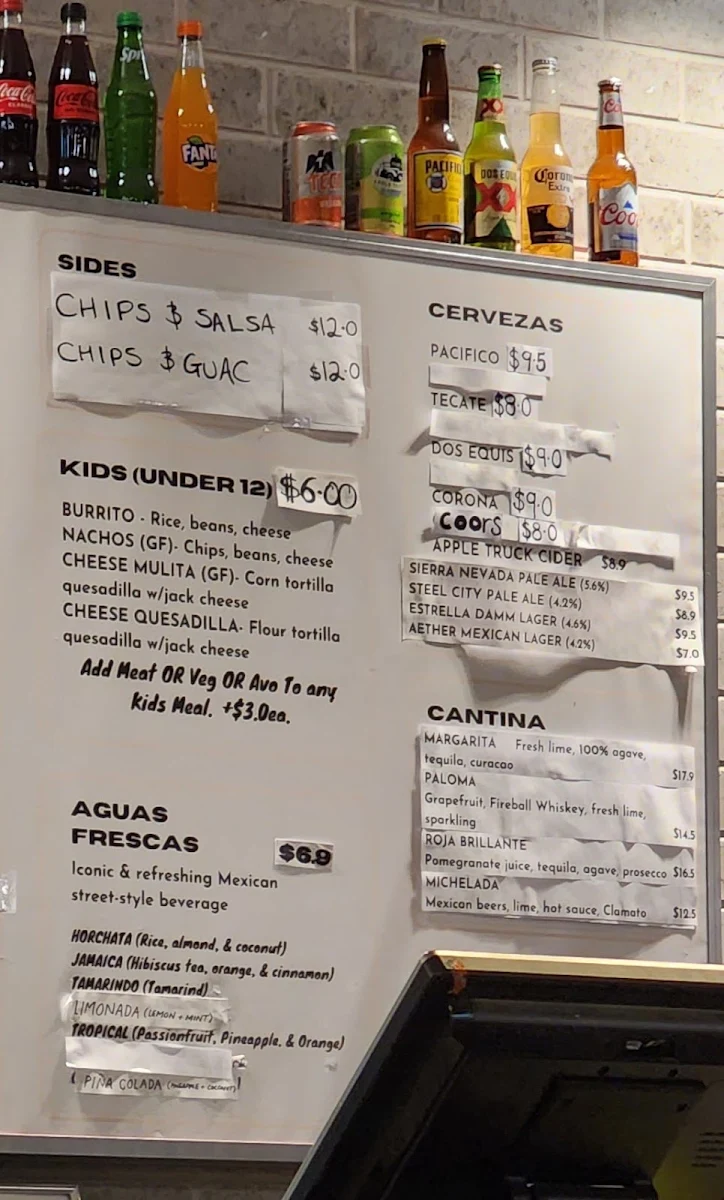 Coca-Cola
CLASSIC
Coca-Cola
Spri
FANT
PACIFIC
XX
DOS EQUI
XX
Corona
Extra
Coo
SIDES
CHIPS & SALSA $12.0
CHIPS & GUAC $12.0
KIDS (UNDER 12) $6.00
BURRITO - Rice, beans, cheese
NACHOS (GF)- Chips, beans, cheese
CHEESE MULITA (GF)- Corn tortilla
quesadilla w/jack cheese
CHEESE QUESADILLA- Flour tortilla
quesadilla w/jack cheese
Add Meat OR Veg OR Avo To any
Kids Meal. +$3.0ea.
AGUAS
FRESCAS $6.9
Iconic & refreshing Mexican
street-style beverage
HORCHATA (Rice, almond, & coconut)
JAMAICA (Hibiscus tea, orange, & cinnamon)
TAMARINDO (Tamarind)
LIMONADA (LEMON + MINT)
TROPICAL (Passionfruit, Pineapple. & Orange)
PINA COLADA (PINEAPPLE + COCONUT)
CERVEZAS
PACIFICO $9.5
TECATE $8.0
DOS EQUIS $9.0
CORONA $9.0
COORS $8.0
APPLE TRUCK CIDER $8.9
SIERRA NEVADA PALE ALE (5.6%) $9.5
STEEL CITY PALE ALE (4.2%) $8.9
ESTRELLA DAMM LAGER (4.6%) $9.5
AETHER MEXICAN LAGER (4.2%) $7.0
CANTINA
MARGARITA Fresh lime, 100% agave,
tequila, curacao $17.9
PALOMA
Grapefruit, Fireball Whiskey, fresh lime,
sparkling $14.5
ROJA BRILLANTE
Pomegranate juice, tequila, agave, prosecco $16.5
MICHELADA
Mexican beers, lime, hot sauce, Clamato $12.5